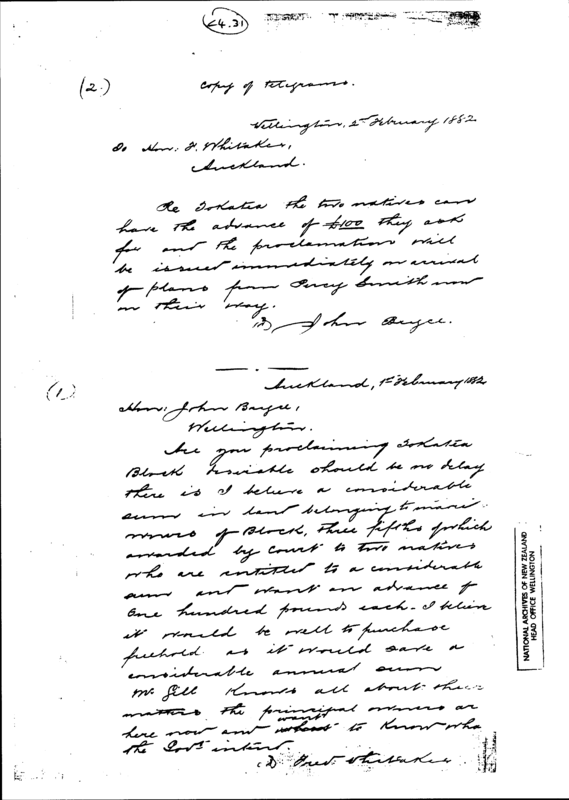 <4.31
(2.)
Copy of telegrams.
Wellington, 2nd February 1882
To Hon: F. Whitaker,
Auckland.
Re Tokatea the two natives can
have the advance of £100 they ask
for and the proclamation will
be issued immediately on arrival
of plans from Percy Smith now
on their way.
John Bryce.
(1.)
Auckland, 1st February 1882
Hon: John Bryce,
Wellington.
Are you proclaiming Tokatea
Block desirable should be no delay
there is I believe a considerable
sum in land belonging to
owners of Block, three fifths of which
awarded by Court to two natives
who are entitled to a considerable
sum and want an advance of
One hundred pounds each. I believe
it would be well to purchase
freehold as it would save a
considerable annual sum
Mr Gill Knows all about
matters the principal owners are
here now and want to Know who
the Govt intend.
Fred. Whitaker
NATIONAL ARCHIVES OF NEW ZEALAND
HEAD OFFICE WELLINGTON